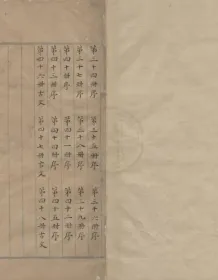 第三十四冊序 第三十五冊序 第三十六冊序
第三十七冊序 第三十八冊序 第三十九冊序
第四十冊序 第四十一冊序 第四十二冊序
第四十三冊序 第四十四冊序 第四十五冊序
第四十六冊 第四十七冊 第四十八冊